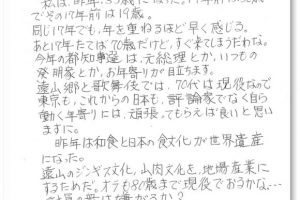 私は、昨年53歳になった。17年前は36歳
でその17年前は19歳。
同じ17年でも、年を重ねるほど早く感じる。
あと17年たてば70歳だけど、すぐ来てしまうだわな。
今年の都知事選は、元総理とか、いつもの
発明家とか、お年寄りが目立ちます。
遠山郷と歌舞伎では、70代は現役なので
東京も、これからの日本も、評論家でなく自ら
働く年寄りには、頑張ってもらえば良いと思い
ますに。
昨年は和食と日本の食文化が世界遺産
になった。
遠山のジンギス文化、山肉文化を、地場産業に
するためだ。オラも80歳まで現役でおろうかな…